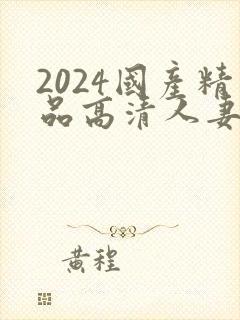 2024國產精
品高清人妻
黃程